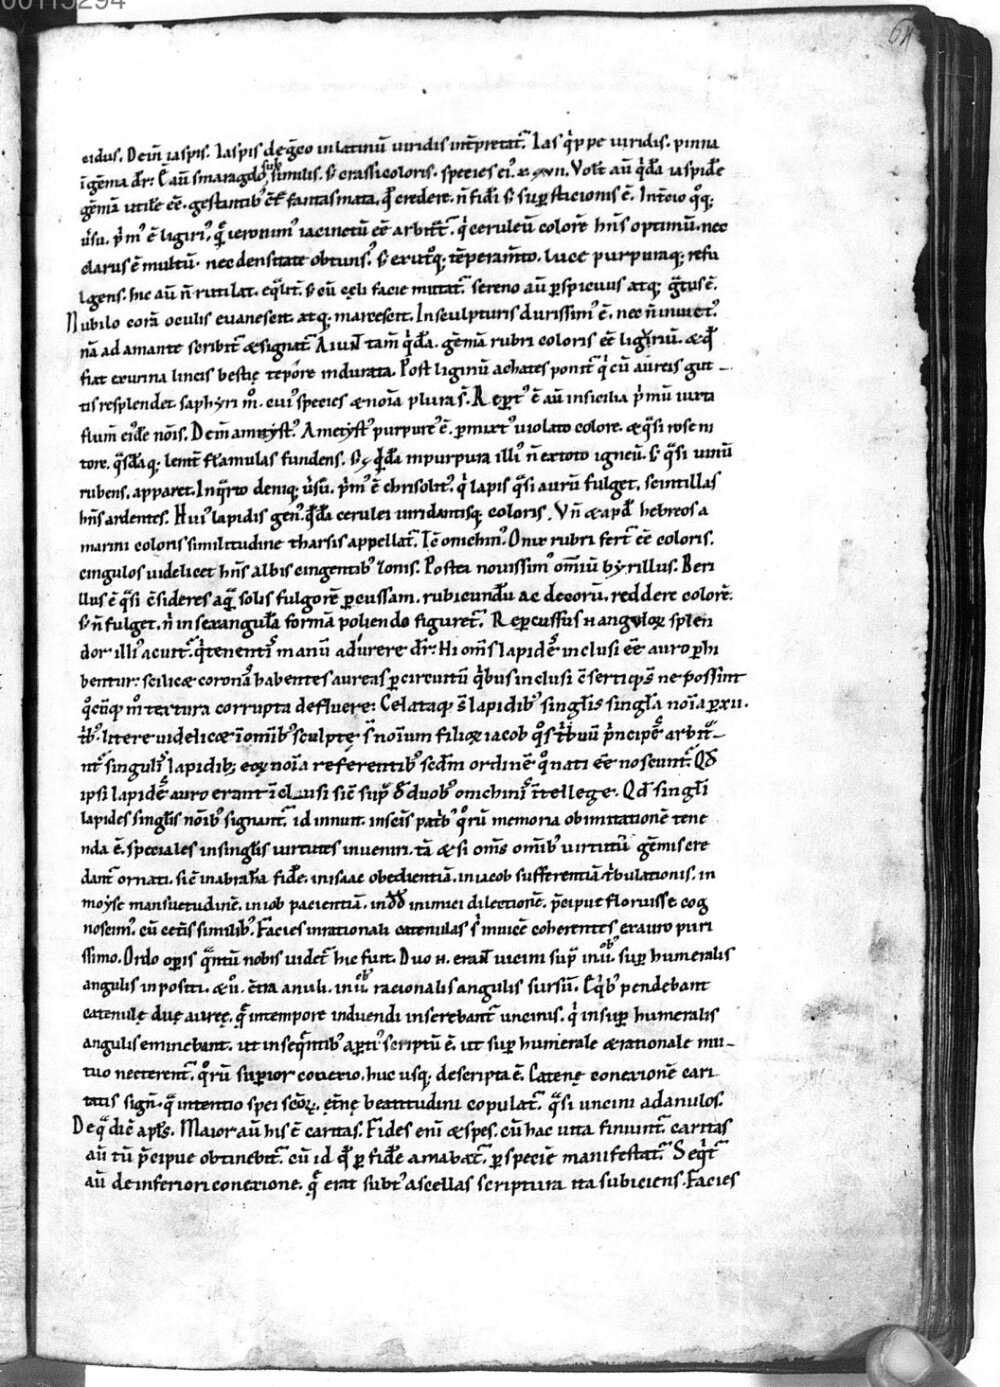 00115294
64
cidus. Deīn iaspis. Iaspis de gͨeo in latinū uiridis int̄pretat᷑. Ias q̇ppe uiridis. pinna
īgēma dr̄. Ē aū smaragdo subsimilis. s̄ crassi coloris. species ei᷒ .xvii. Volt aū q̇dā iaspidē
gēmā utilē eē. gestantib᷒ ēē fantasmata. qđ credere. n̄ fidi s̄ suꝑsticionis ē. In t̄cio q̊q;
ūsu. p̄m᷒ ē ligiri᷒. quē ieronim᷒ iacinctū eē arbitt᷑. q̇ ceruleū colorē hn̄s optimū. nec
clarus ē multū. nec densitate obtuns᷒. s̄ ex utq̊; tēperam̄to. luce purpuraq; refu
lgens. hic aū n̄ rutilat eqlit᷑. s̄ cū cęli facie mutat᷑. sereno aū ꝑspicuus atq; gͣtus ē.
Nubilo corā oculis euanescit. atq. marcescit. In sculpturis durissim᷒ ē. nec n̄ inuict᷒.
nā adamante scribit᷑ & signat᷑. Aiunt tam̄ q̇dā. gēmā rubri coloris eē ligyriū. & qđ
fiat ex urina lincis bestię tepore indurata. Post liginū achates ponit᷑ q̇ cū aureis gut-
tis resplendet saphyri m̊. cui᷒ species & noīa plura s̄. Reꝑt᷒ ē aū in sicilia p̄mū iuxta
flum̄ eidē nōis. Deīn amatyst᷒. Ametyst᷒ purpure᷒ ē. ꝑmixt᷒ uiolato colore. & qͣsi rose ni
tore. qͣsdāq; lenit᷑ flāmulas fundens. s̄ & q̇dā in purpura illi᷒ n̄ ex toto igneū. s̄ qͣsi uinū
rubens. apparet. In qͣrto deniq; ūsū. p̄m᷒ ē chrisolit᷒. q̇ lapis qͣsi aurū fulget. scintillas
hn̄s ardentes. Hui᷒ lapidis gen᷒. q̇dā cerulei uiridantisq; coloris. Vn̄ & apđ hebreos a
marini coloris similitudine tharsis appellat᷑. Iē onichin᷒. Onix rubri fert᷑ eē coloris.
cingulos uidelicet hn̄s albis cingentib᷒ zonis. Postea nouissim᷒ omiū byrillus. Beri
llus ē qͣsi ē sideres aqͣ solis fulgorē ꝑcussam. rubicundū ac decorū. reddere colorē.
s̄ n̄ fulget. n̄ in sexangulā formā poliendo figuret᷑. Reꝑcussus n̄ anguloꝝ splen
dor illi᷒ acuit᷑. q̇ tenenti᷒ manū adurere dr̄. Hi om̄s lapides inclusi eē auro ꝑhi
bentur: scilicæ coronā habentes aureas ꝑ circuitū qͥbus inclusi c̄sertiq; s̄ ne possint
qͦcūq; m̊ textura corrupta defluere: Celataq; s̄ lapidib᷒ singulis singla noīa ꝑ xii.
tb᷒. litere uidelicæ ī omib᷒ sculptę s̄ noīum filioꝝ iacob qͦs tbuū p̄ncipes arbit᷑-
nt᷑ singulis lapidib; eoꝝ noīa referentib᷒ sedm̄ ordinē qͦ nati eē noscunt᷑. Qđ
ipsi lapides auro erant īclusi sic̄ supͣ đ duob᷒ onichinis ītellege. Qđ singuli
lapides singlis nōib᷒ signant᷑. id innuit. in sc̄is patrib᷒ qͦrū memoria ob imitationē tene
nda ē. speciales in singlis uirtutes inueniri. tā & si om̄s omib᷒ uirtutū gēmis cre
dant᷑ ornati. sic̄ in abrahā fides. in isaac obedientiā. in iacob sufferentiā t̄bulationis. in
moyse mansuetudinē. in iob pacientiā. in dđ inimici dilectionē. p̄cipue floruisse cog
noscim᷒. cū cet̄is similib᷒. Facies in rationali catenulas s̄ inuicē coherentes ex auro puri
ssimo. Ordo oꝑis qͣntū nobis uidet᷑ hic fuit. Duo n̄. erant uncini supͣ in ūb᷒. suꝑ humeralis
angulis in positi. & ii. c̄tra anuli. in ūb᷒ racionalis angulis sursū. E qͥb᷒ pendebant
catenulę duę aureę. quę in tempore induendi inserebant᷑ uncinis. q̇ in suꝑ humeralis
angulis eminebant. ut in seqͣntib᷒ aꝑti᷒ scriptū ē. ut suꝑ humerale & rationale mu-
tuo necterent᷑. qͦrū suꝑior conexio. huc usq; descripta ē. Catenę conexionē cari
tatis sign̄. qͣ intentio spei sc̄oꝝ. et̄nę beatitudini copulat᷑. qͣsi uncini ad anulos.
De qͣ dic̄ apl̄s. Maior aū his ē caritas. Fides eni & spes. cū hac uita finiunt᷑. caritas
aū tū p̄cipue obtinebit᷑. cū id qđ ꝑ fidē amabat᷑. ꝑ speciē manifestat᷑. Seqit᷑
aū de inferiori conexione. quę erat subt᷒ ascellas scriptura ita subiciens. Facies